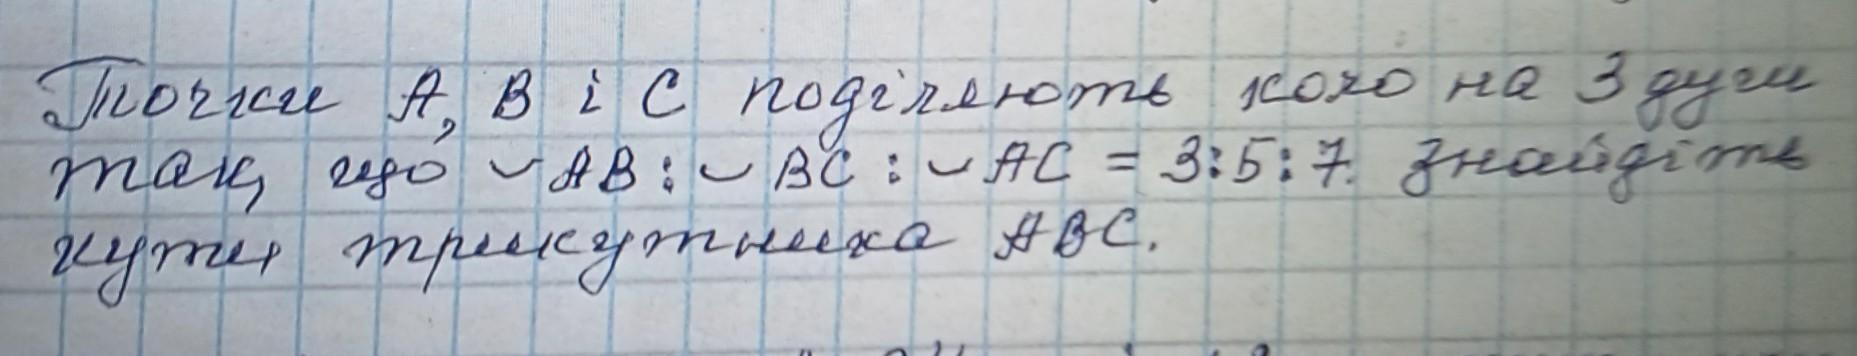 Точки А, В і С поділяють коло на 3 дуги
так, що ◡AB : ◡BC : ◡AC = 3:5:7. Знайдіть
кути трикутника ABC.